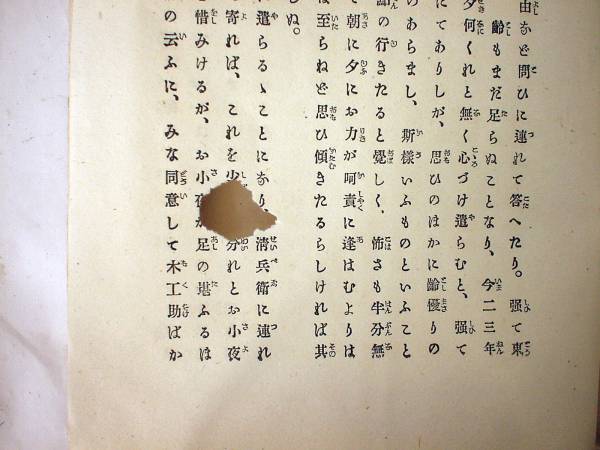 由など問ひに連れて答へたり。强て東
齡もまだ足らぬことなり、今二三年
夕何くれと無く心づけ遣らむと、强て
にてありしが、思ひのほかに齡優りの
のあらまし、斯樣いふものといふこと
の行きたると覺しく、怖さも半分無
て朝に夕にお力が呵責に逢はむよりは
は至らねど思ひ傾きたるらしければ其
しぬ。
遣らるゝことになり、淸兵衞に連れ
寄れば、これを 分れとお小夜
惜みけるが、お小夜 足の堪ふるは
の云ふに、みな同意して木工助ばか